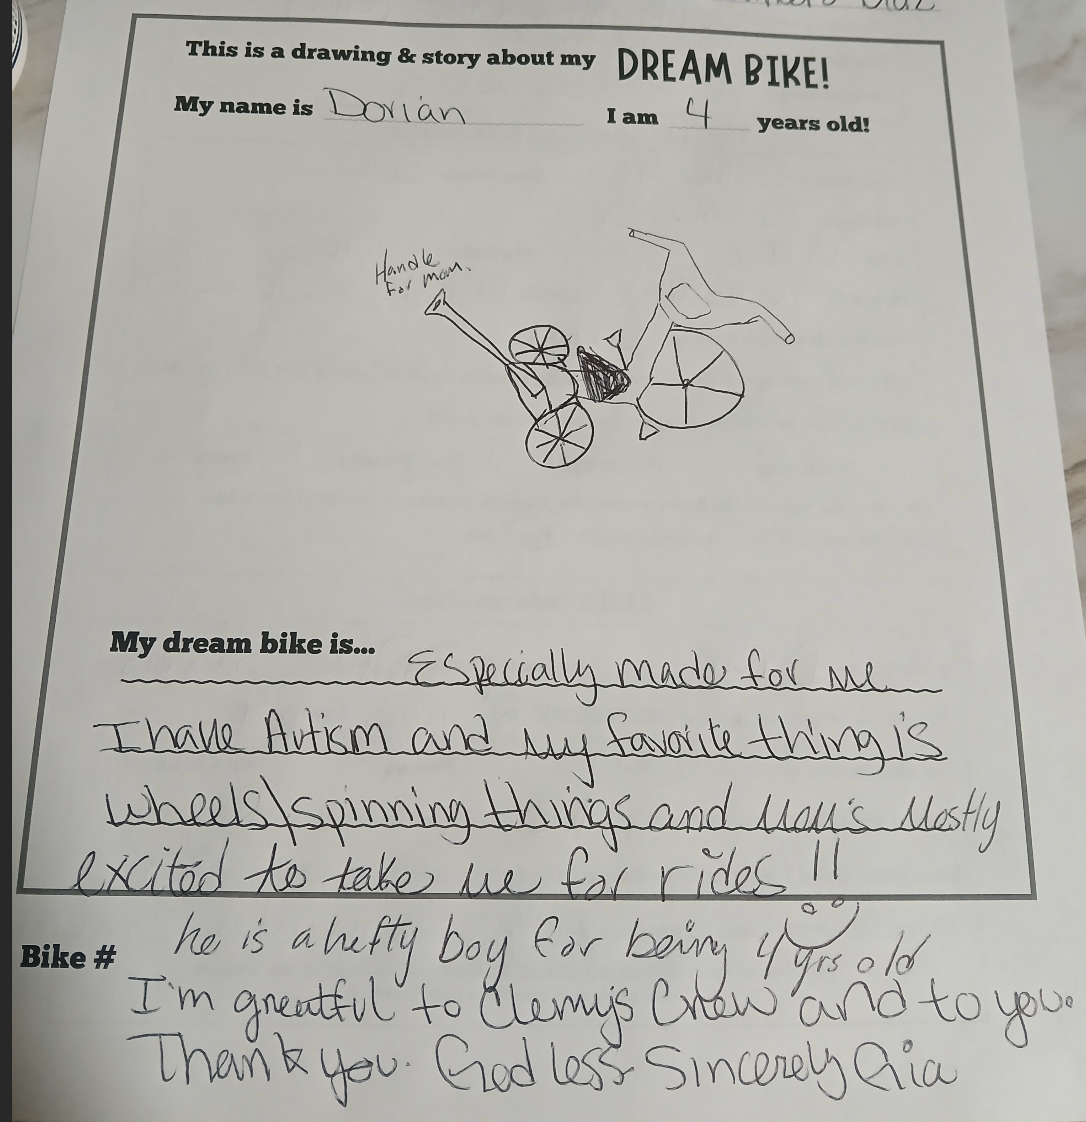 This is a drawing & story about my DREAM BIKE!
My name is Dorian I am 4 years old!
Handle
for mom.
My dream bike is... Especially made for me
I have Autism and my favorite thing is
wheels\spinning things and Mom's Mostly
excited to take me for rides !!
he is a hefty boy for being 4 yrs old
Bike #
I'm greatful to Clemy's Crew and to you.
Thank you. God less Sincerely Gia